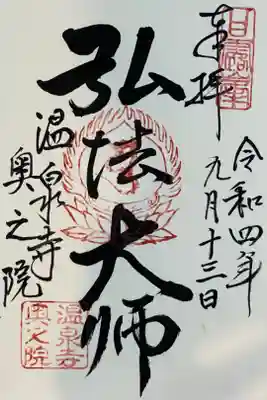 奉拝
令和四年
九月十三日
弘法大师
温泉寺
奥之院
温泉寺
奥之院